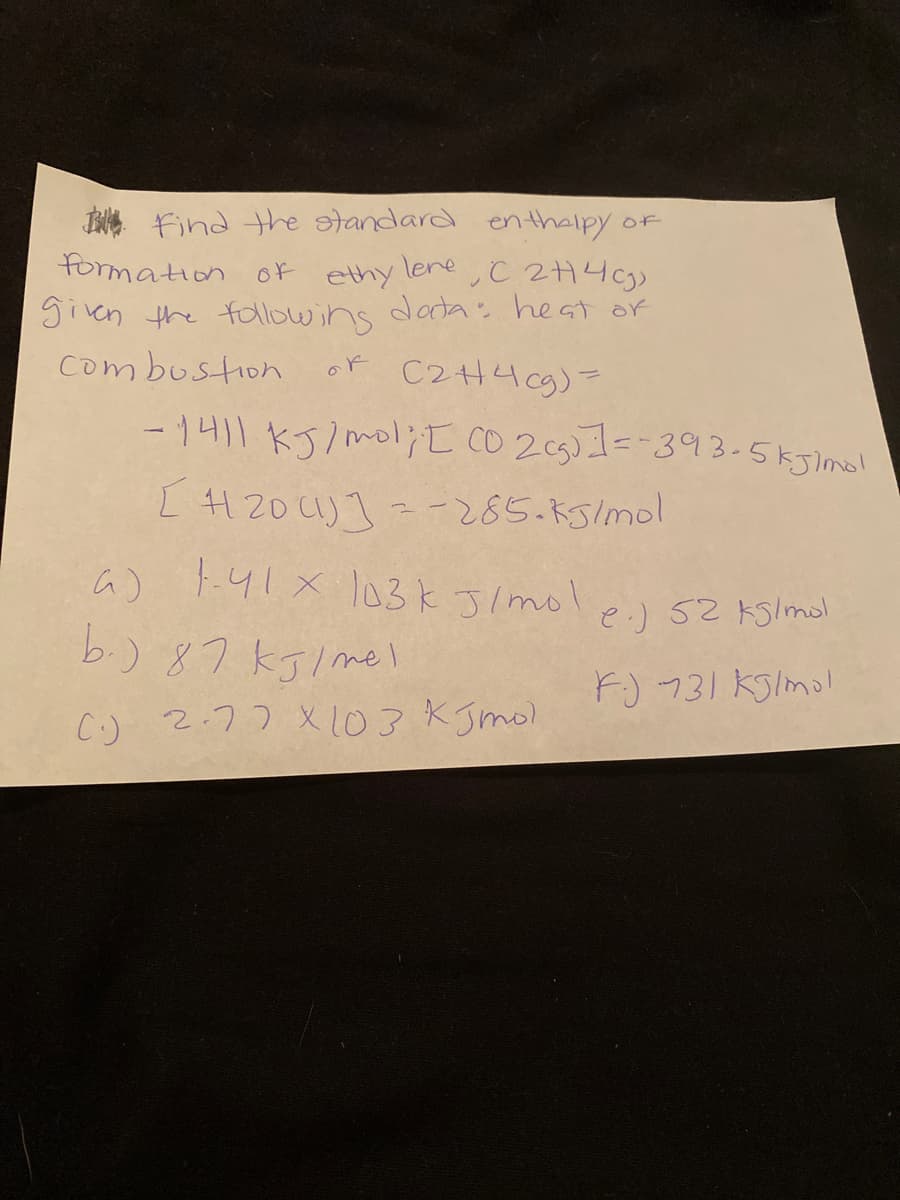 Find the standard enthalpy of
formation of ethylene, C2H4(g),
given the following data: heat of
combustion of C2H4(g) =
-1411 kJ/mol; [CO2(g)] = -393.5 kJ/mol
[H2O(l)] = -285.kJ/mol
a) 1.41 x 103k J/mol
b.) 87 kJ/mol
c.) 2.77 x 103 kJmol
e.) 52 kJ/mol
F.) 731 kJ/mol